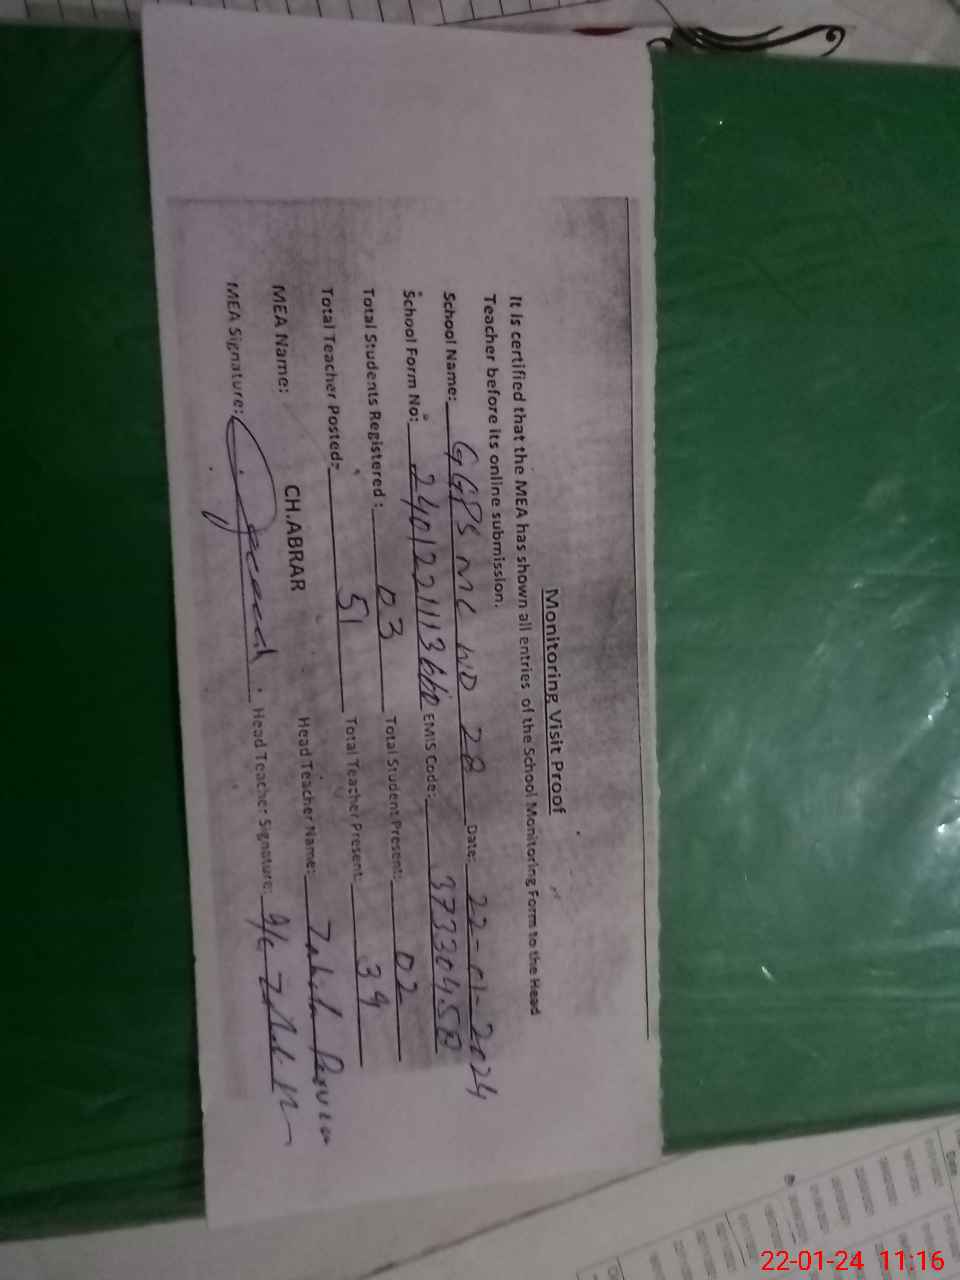 Monitoring Visit Proof
It is certified that the MEA has shown all entries of the School Monitoring Form to the Head
Teacher before its online submission.
School Name: GGPS MC NO 28 Date: 22-01-2024
School Form No: 2401221113660 EMIS Code: 37330458
Total Students Registered : 03 Total Student Present: 02
Total Teacher Posted: 51 Total Teacher Present: 39
MEA Name: CH.ABRAR Head Teacher Name: Zahida Parveen
MEA Signature: Head Teacher Signature:
22-01-24 11:16